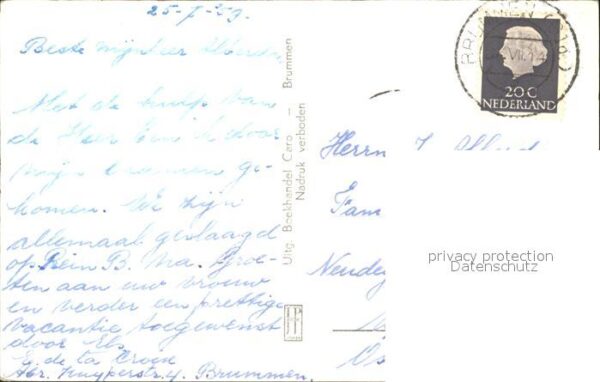 25-7-'59.
Beste mijnheer
Met de hulp van
de Heer ben ik door
mijn examen ge-
komen. We zijn
allemaal geslaagd
op Rein B. na. Groe-
ten aan uw vrouw
en verder een prettige
vacantie toegewenst
door Els.
E. de la Croix
Abr. Kuyperstr. 4. Brummen.
Uitg. Boekhandel Caro - Brummen
Nadruk verboden
BRUMMEN (GLD.)
20 C
NEDERLAND
Herrn J.
Fam
privacy protection
Datenschutz